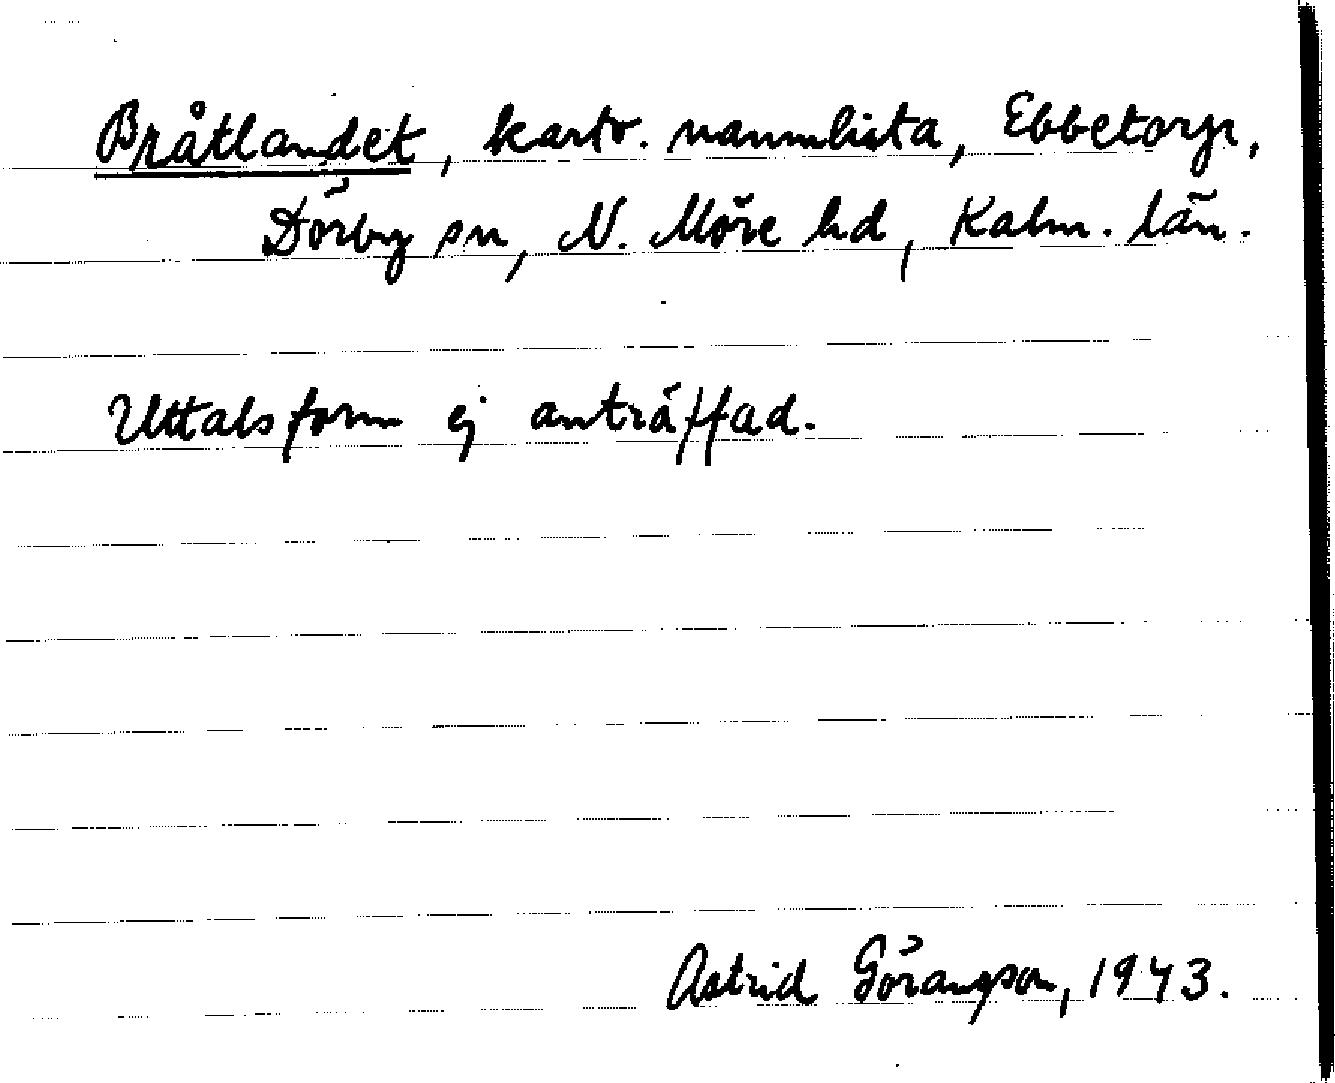 Bråtlandet, kartv. namnlista, Ebbetorp,
Dörby sn, N. Möre hd, Kalm. län.
Uttalsform ej anträffad.
Astrid Göransson, 1943.